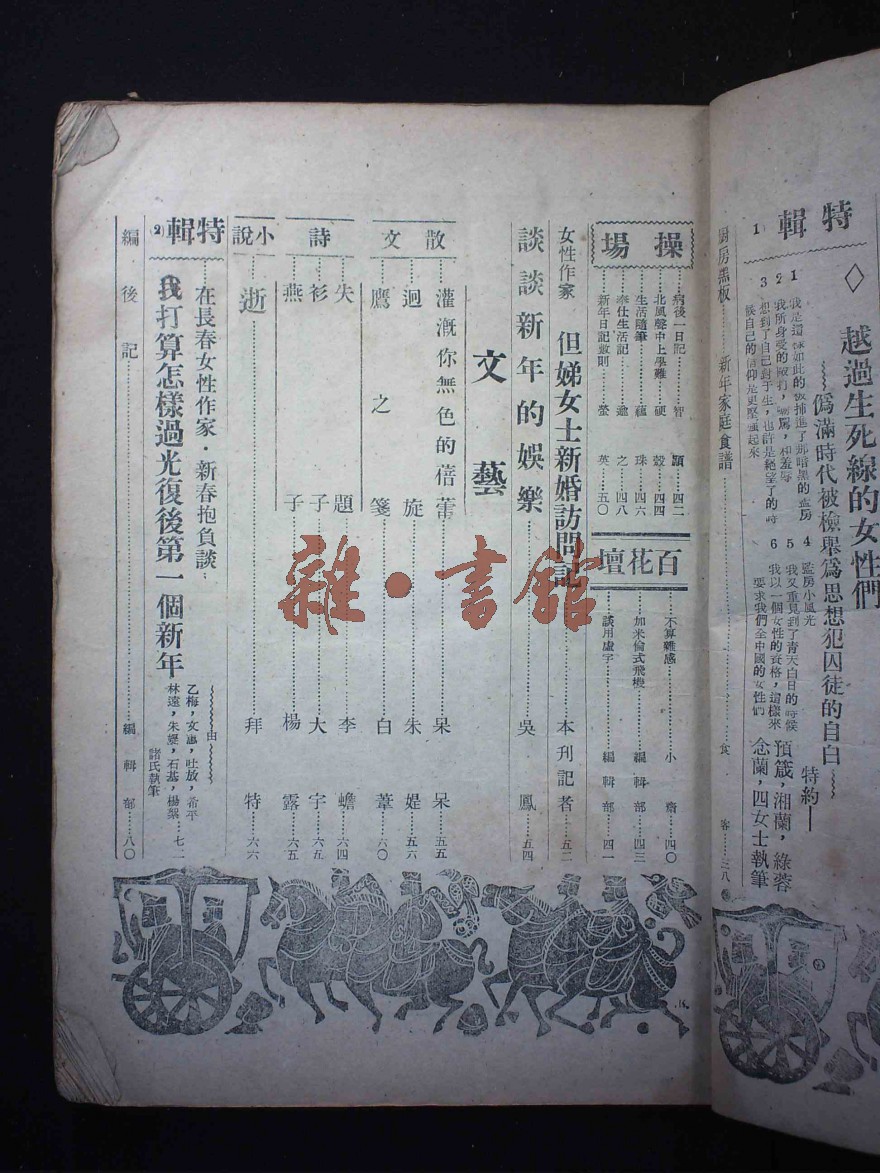 特輯
1
◇ 越過生死線的女性們
偽滿時代被檢舉爲思想犯囚徒的自白
特約—
預箴，湘蘭，綠蓉
念蘭，四女士執筆
1 我是這樣如此的被捕進了那暗黑的監房
2 我所身受的毆打，辱罵，和羞辱
3 想到了自己對于生，也許是絕望了的時
候自己的信仰是更堅強起來
4 監房小風光
5 我又重見到了青天白日的時候
6 我以一個女性的資格，這樣來
要求我們全中國的女性們
厨房黑板……新年家庭食譜……食客……三八
操場
病後一日記……智顯……四二
北風聲中上學難……硬殼……四四
生活隨筆……蘊珠……四六
奉仕生活記……逾之……四八
新年日記數則……螢英……五〇
百花壇
不算雜感……小齋……四〇
加米倫式飛機……編輯部……四三
談用虛字……編輯部……四一
女性作家 但娣女士新婚訪問記……本刊記者……五二
談談新年的娛樂……吳鳳……五四
文藝
散文
灌漑你無色的蓓蕾……呆呆……五五
迴旋……朱媞……五六
鷹之箋……白葦……六〇
詩
失題……李蟾……六四
衫子……大字……六五
燕子……楊露……六五
小說
逝……拜特……六六
特輯
2
……在長春女性作家·新春抱負談……
我打算怎樣過光復後第一個新年
由
乙梅，女蕙，吐放，希平
林遠，朱媞，石基，楊絮……七二
諸氏執筆
編後記……編輯部……八〇
雜·書館